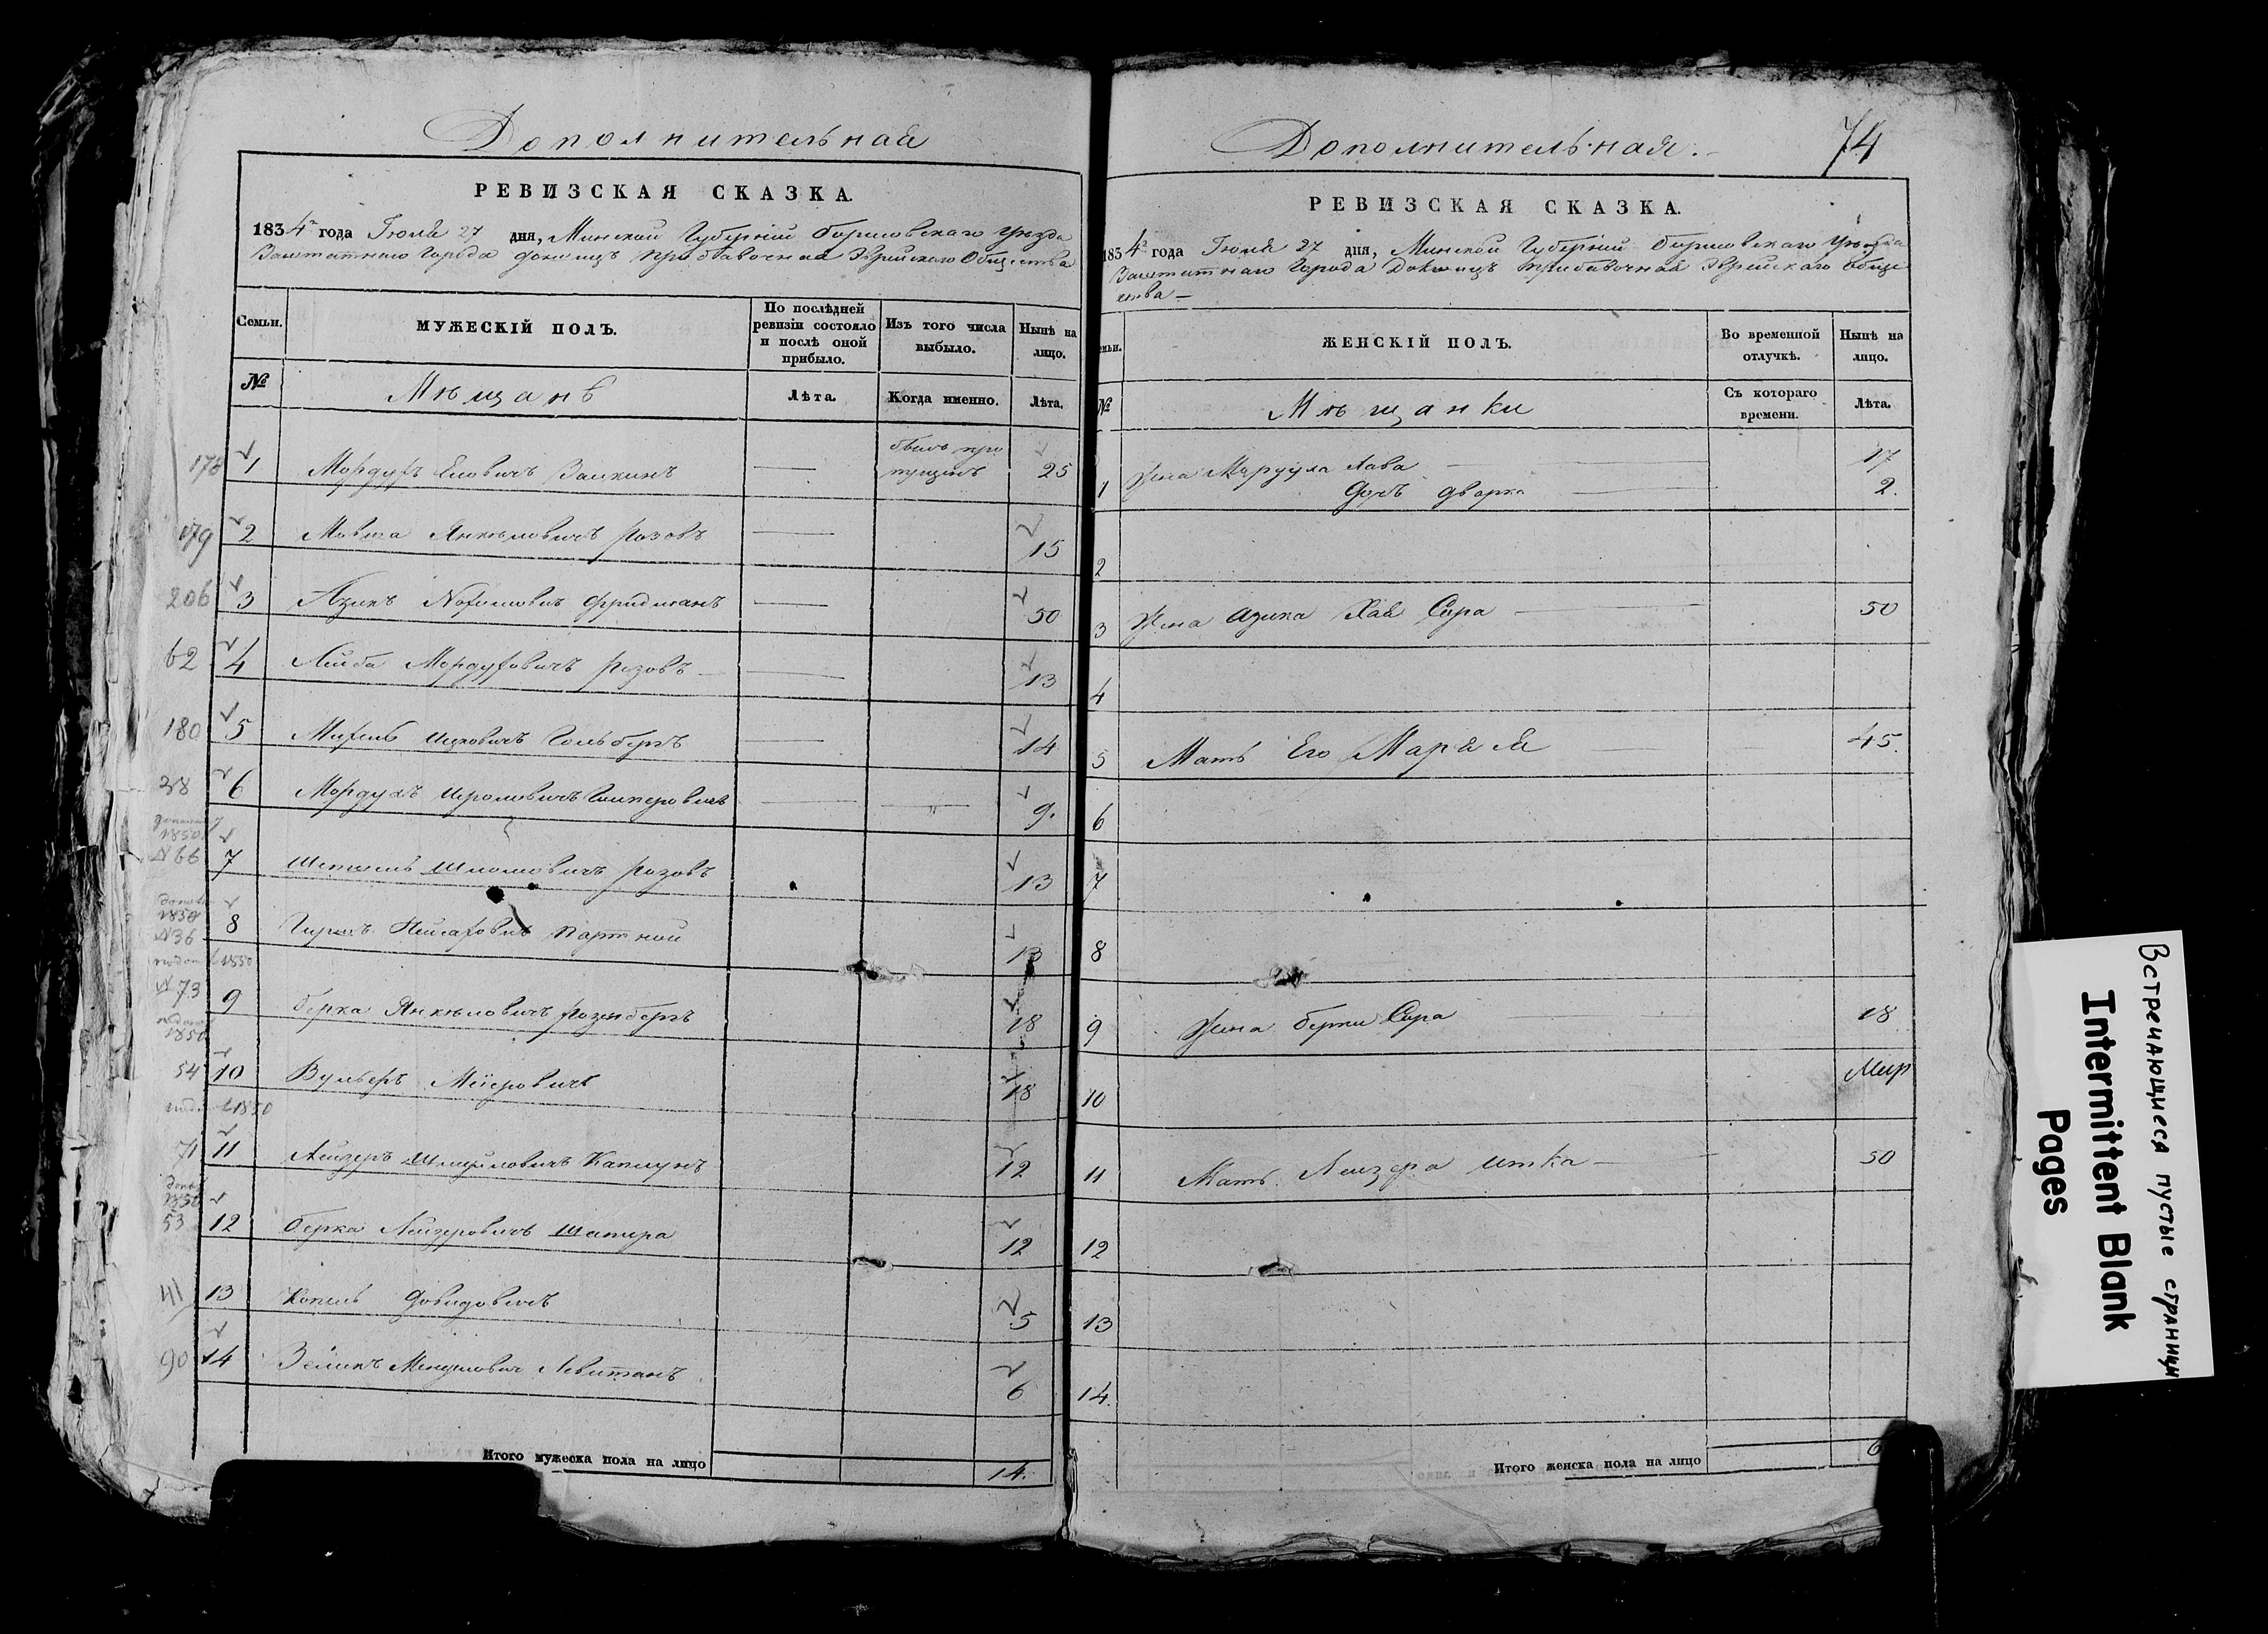 Дополнительная
РЕВИЗСКАЯ СКАЗКА.
1834 года Іюля 27 дня, Минской Губерніи Борисовскаго Уѣзда
Заштатнаго Города Докшицъ Прибавочная Еврейскаго Общества
Семьи.
МУЖЕСКІЙ ПОЛЪ.
По послѣдней ревизіи состояло и послѣ оной прибыло.
Изъ того числа выбыло.
Нынѣ на лицо.
№
Мѣщанѣ
Лѣта.
Когда именно.
Лѣта.
178 1 Мордухъ Еловичъ былъ про пущенъ 25
179 2 Мовша Янкѣловичъ Розовъ 15
206 3 Айзикъ Фридманъ 50
62 4 Лейба Мордуховичъ Розовъ 13
180 5 Михель Ицковичъ Гольбергъ 14
38 6 Мордухъ 9.
1850
№66 7 Шломовичъ Розовъ 13
1850
№36 8 Портной 13
1850
№73 9 Берка Янкѣловичъ Розенбергъ 18
1850
54 10 Вульфъ Меіеровичъ 18
1850
71 11 Лейзеръ Шмуйловичъ Каплунъ 12
1850
53 12 Берка Лейзеровичъ Шапира 12
41 13 Копель Довидовичъ 5
90 14 Зеликъ Менделовичъ Левитанъ 6
Итого мужеска пола на лицо 14.
Дополнительная.
74
РЕВИЗСКАЯ СКАЗКА.
1834 года Іюля 27 дня, Минской Губерніи Борисовскаго Уѣзда
Заштатнаго Города Докшицъ Прибавочная Еврейскаго Обще
ства
ЖЕНСКІЙ ПОЛЪ.
Во временной отлучкѣ.
Нынѣ на лицо.
№
Мѣщанки
Съ котораго времени.
Лѣта.
1 Жена Мордуха Хава 17
Дочь Дворка 2.
2
3 Жена Айзика Хая Сора 50
4
5 Мать Его Марья 45.
6
7
8
9 Жена Берки Сора 18
10
11 Мать Лейзера Итка 50
12
13
14.
Итого женска пола на лицо 6
Встречающиеся пустые страницы
Intermittent Blank
Pages